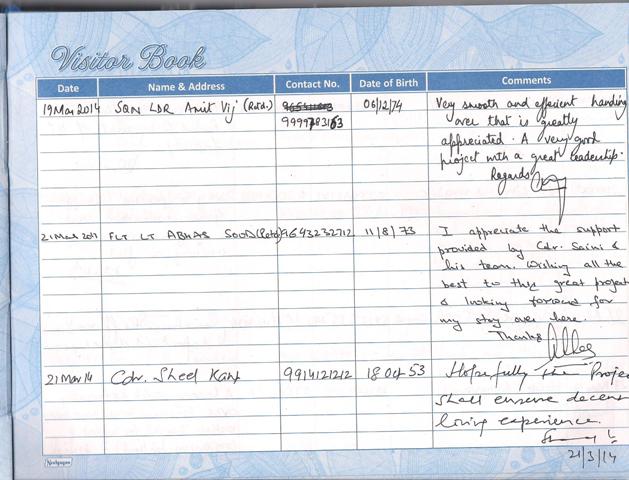 Visitor Book
Date Name & Address Contact No. Date of Birth Comments
19 Mar 2014 SQN LDR Amit Vij (Retd.) 06/12/74 Very smooth and efficient handing
over that is greatly
appreciated. A very good
project with a great leadership.
Regards
21 Mar FLT LT ABHAS SOOD (Retd) 9643232712 11/8/73 I appreciate the support
provided by Cdr. Saini &
his team. Wishing all the
best to this great project
& looking forward for
my stay over here.
Thanks
21 Mar 14 Cdr. Sheel Kant 9914121212 18 Oct 53 Hopefully the Projec
shall ensure decen
living experience.
21/3/14
Neelgagan